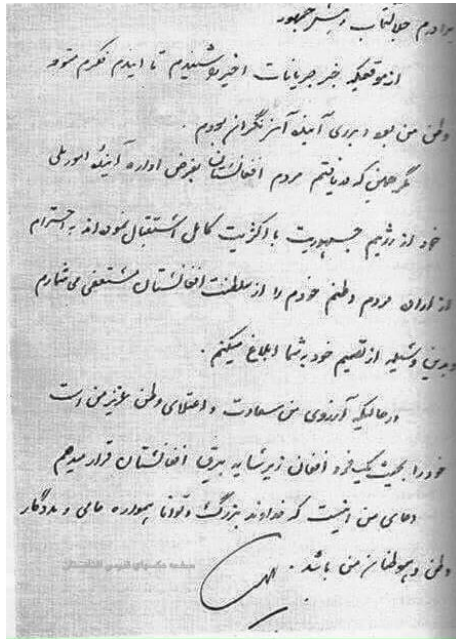 برادرم جلالتمآب رئیس جمهور
از موقعیکه خبر جریانات اخیر را شنیدم تا ایندم فکرم متوجه
وطن من بود و برای آینده آن نگران بودم .
مگر همین که دریافتم مردم افغانستان بغرض اداره آینده امور ملی
خود از رژیم جمهوریت با اکثریت کامل استقبال نموده اند به احترام
از اراده مردم وطنم خودم را از سلطنت افغانستان مستعفی می شمارم
و بدین وسیله از تصمیم خود به شما ابلاغ میکنم .
در حالیکه آرزوی من سعادت و اعتلای وطن عزیز من است
خود را بحیث یک فرد افغان زیر سایه بیرق افغانستان قرار میدهم
دعای من اینست که خداوند بزرگ و توانا همواره حامی و مددگار
وطن و هموطنان من باشد .
صفحه عکسهای قدیمی افغانستان